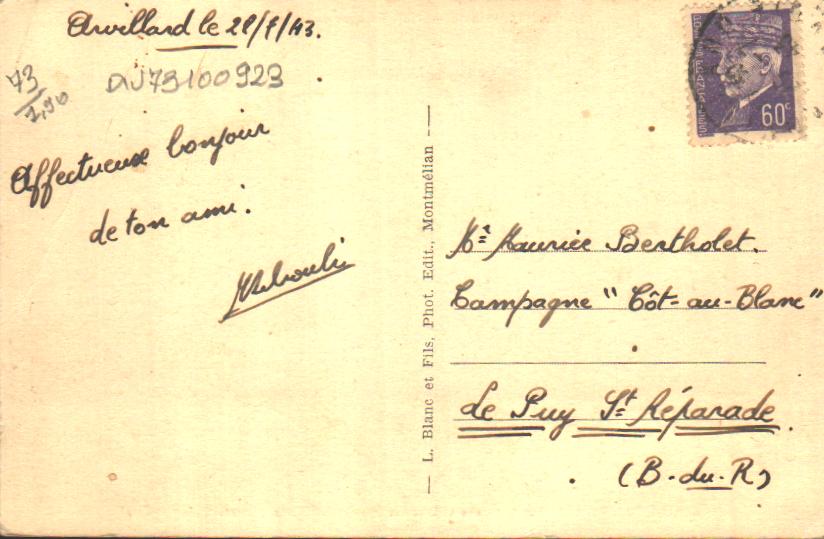 Arvillard le 28/8/43.
73
7,90
DV73100923
Affectueux bonjour
de ton ami.
L. Blanc et Fils, Phot. Edit., Montmélian
60c
Mr Maurice Bertholet.
Campagne "Côt-au-Blanc"
Le Puy St Réparade.
(B.du.R)